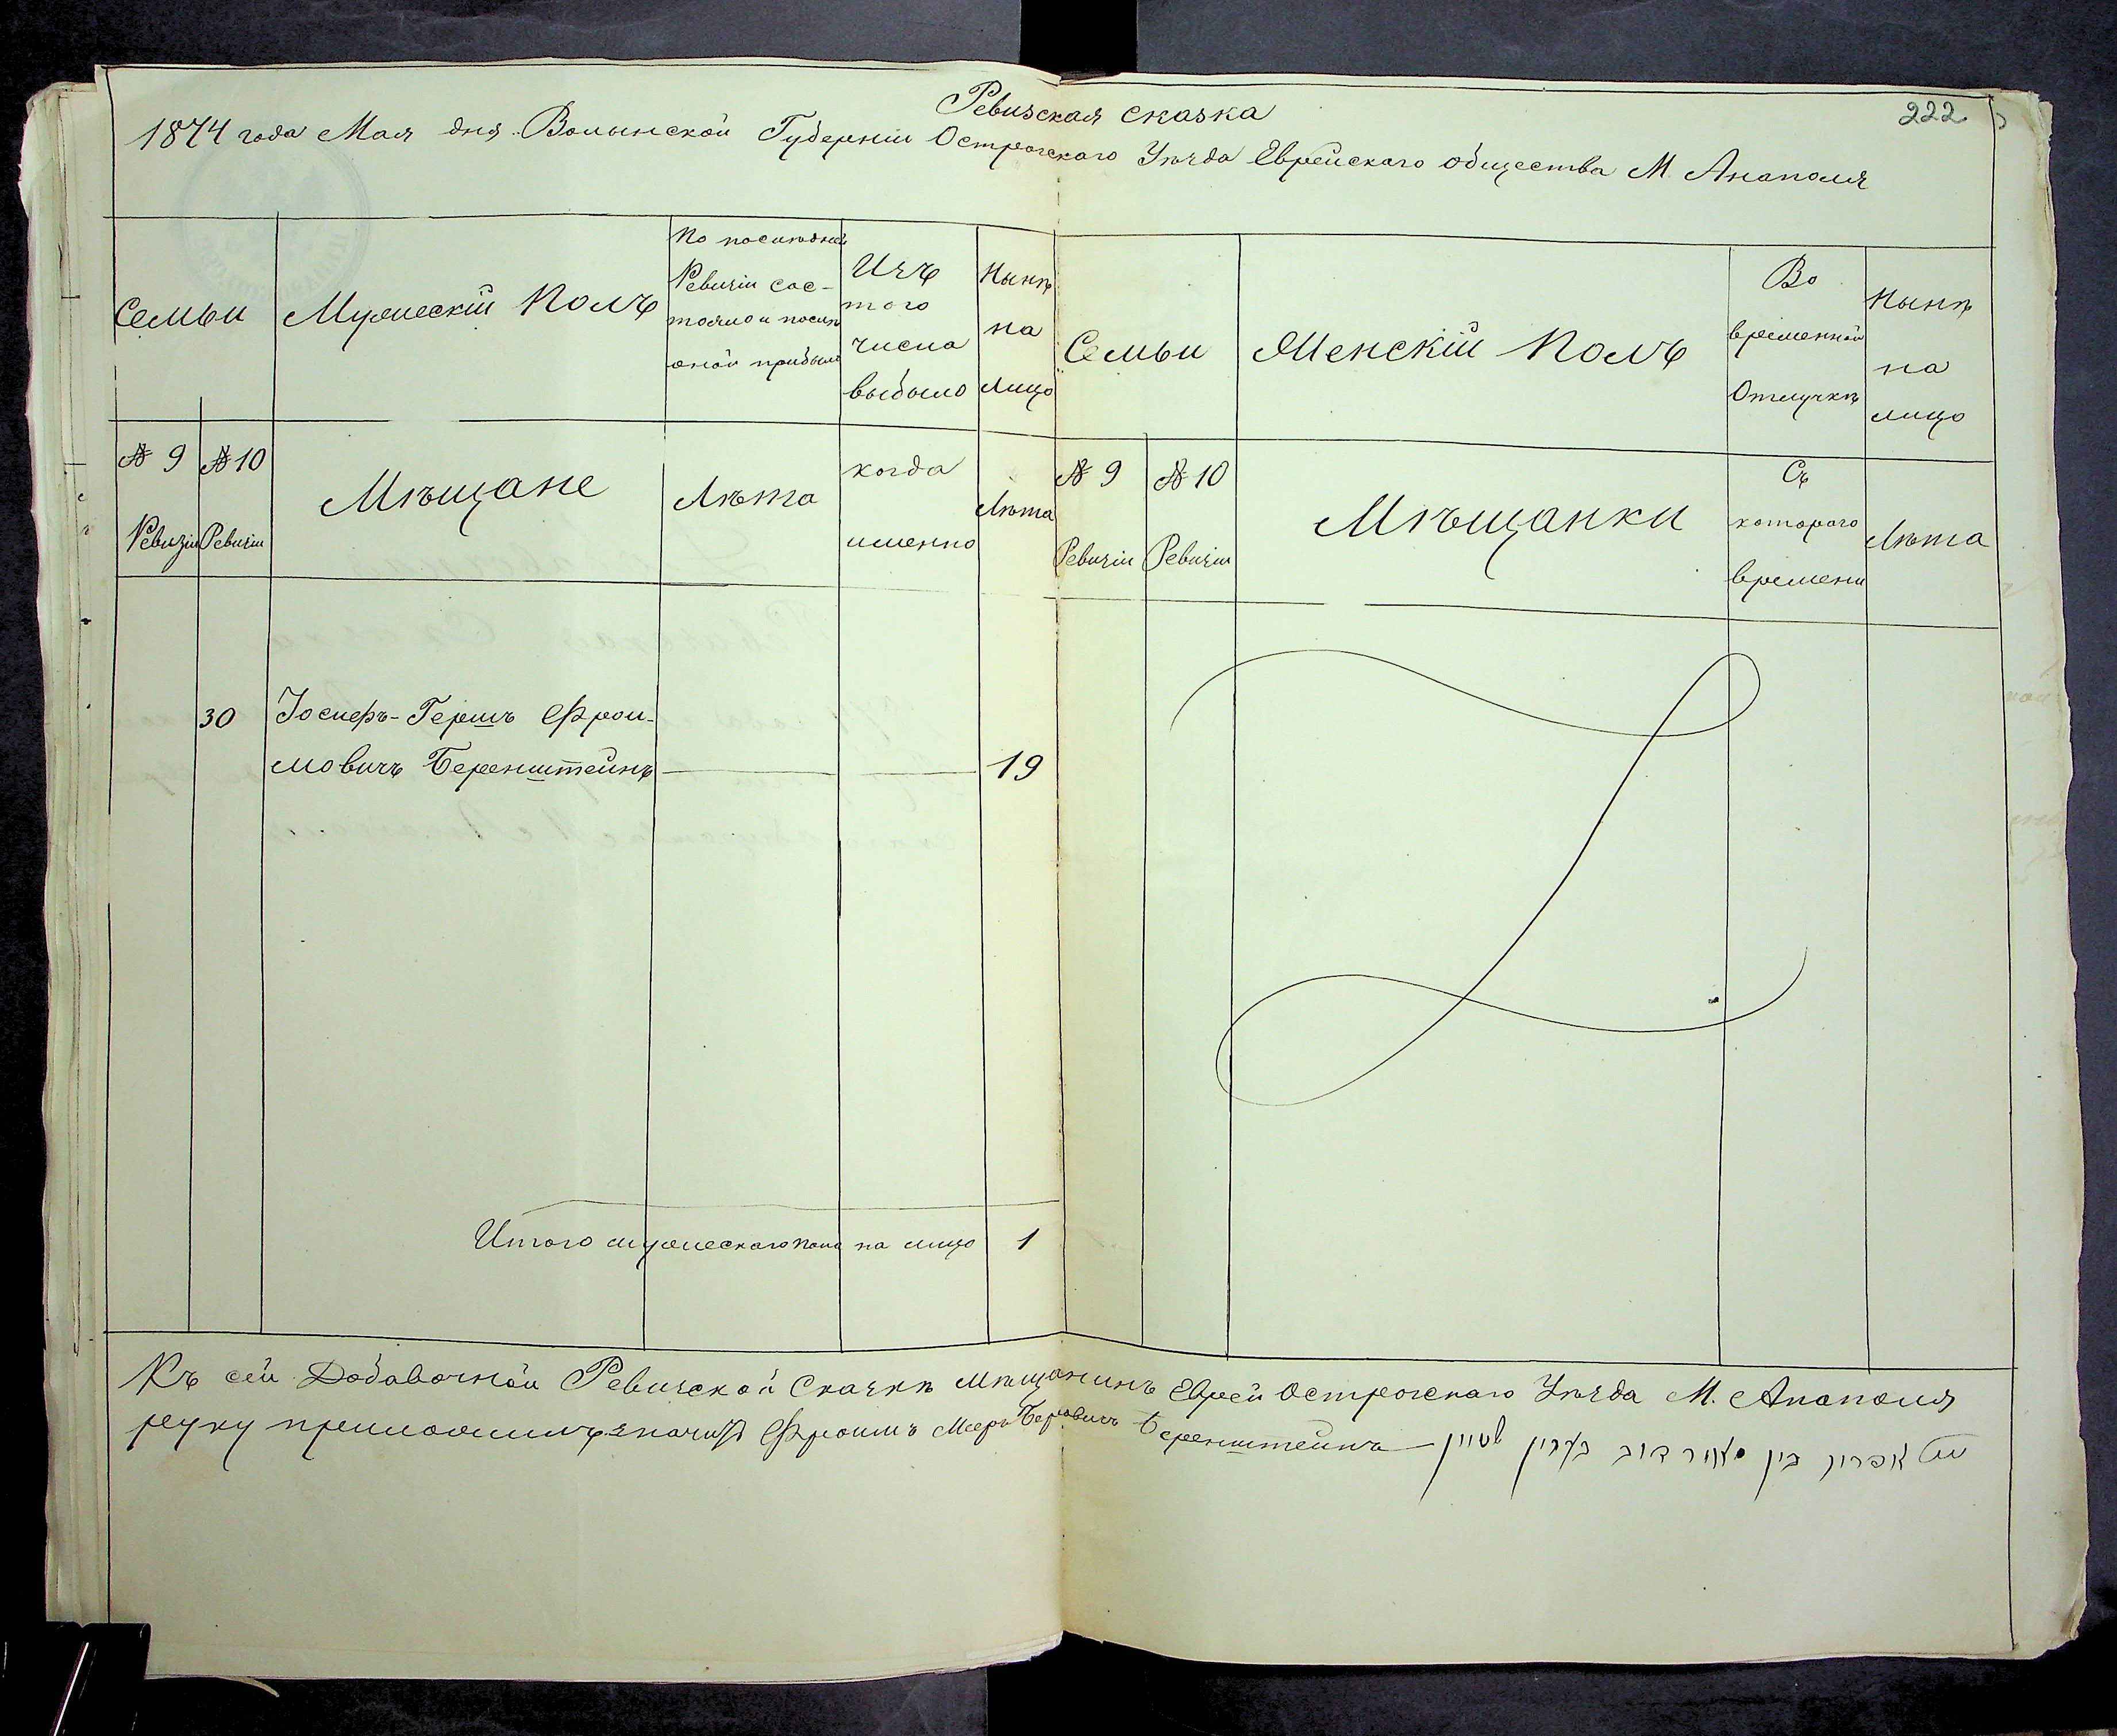 222
Ревизская сказка
1874 года Мая дня Волынской Губерніи Острогскаго Уѣзда Еврейскаго общества М. Анаполя
Семьи
Мужескій Полъ
По послѣдней
Ревизіи сос-
тояло и послѣ
оной прибыло
Изъ
того
числа
выбыло
Нынѣ
на
лицо
Семьи
Женскій Полъ
Во
временной
Отлучкѣ
Нынѣ
на
лицо
№ 9
Ревизіи
№ 10
Ревизіи
Мѣщане
Лѣта
когда
именно
Лѣта
№ 9
Ревизіи
№ 10
Ревизіи
Мѣщанки
Съ
котораго
времени
Лѣта
30
Іосифъ-Гершъ Фрои-
мовичъ Беренштейнъ
19
Итого мужескаго пола на лицо 1
Къ сей Добавочной Ревизской Сказкѣ мѣщанинъ Еврей Острогскаго Уѣзда М. Анаполя
руку приложилъ Фроимъ Мееръ Беровичъ Беренштейнъ
אפרים בין מאיר בערין שטיין